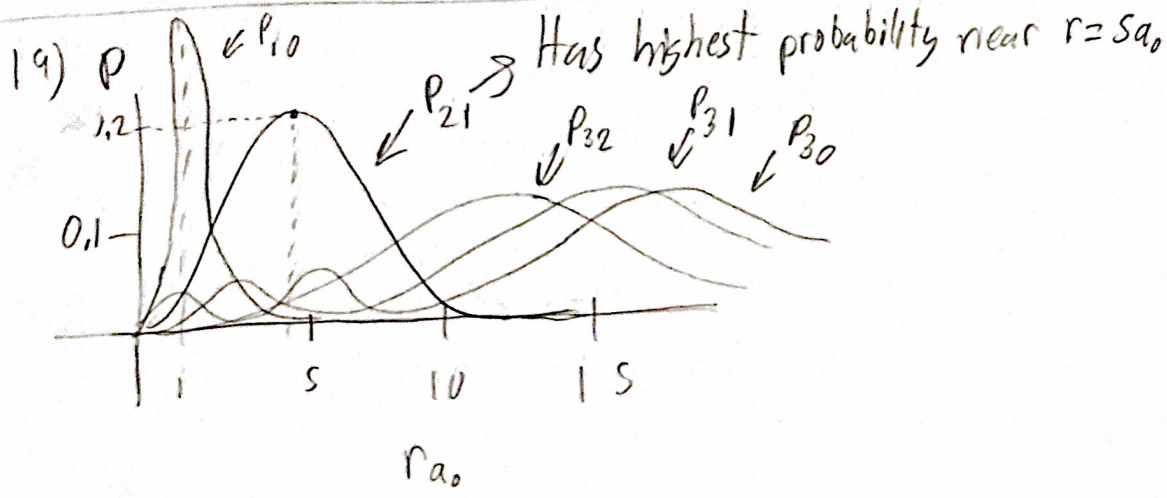 19) P
P10
P21 → Has highest probability near r=5a₀
P32
P31
P30
1,2
0,1
1 5 10 15
ra₀